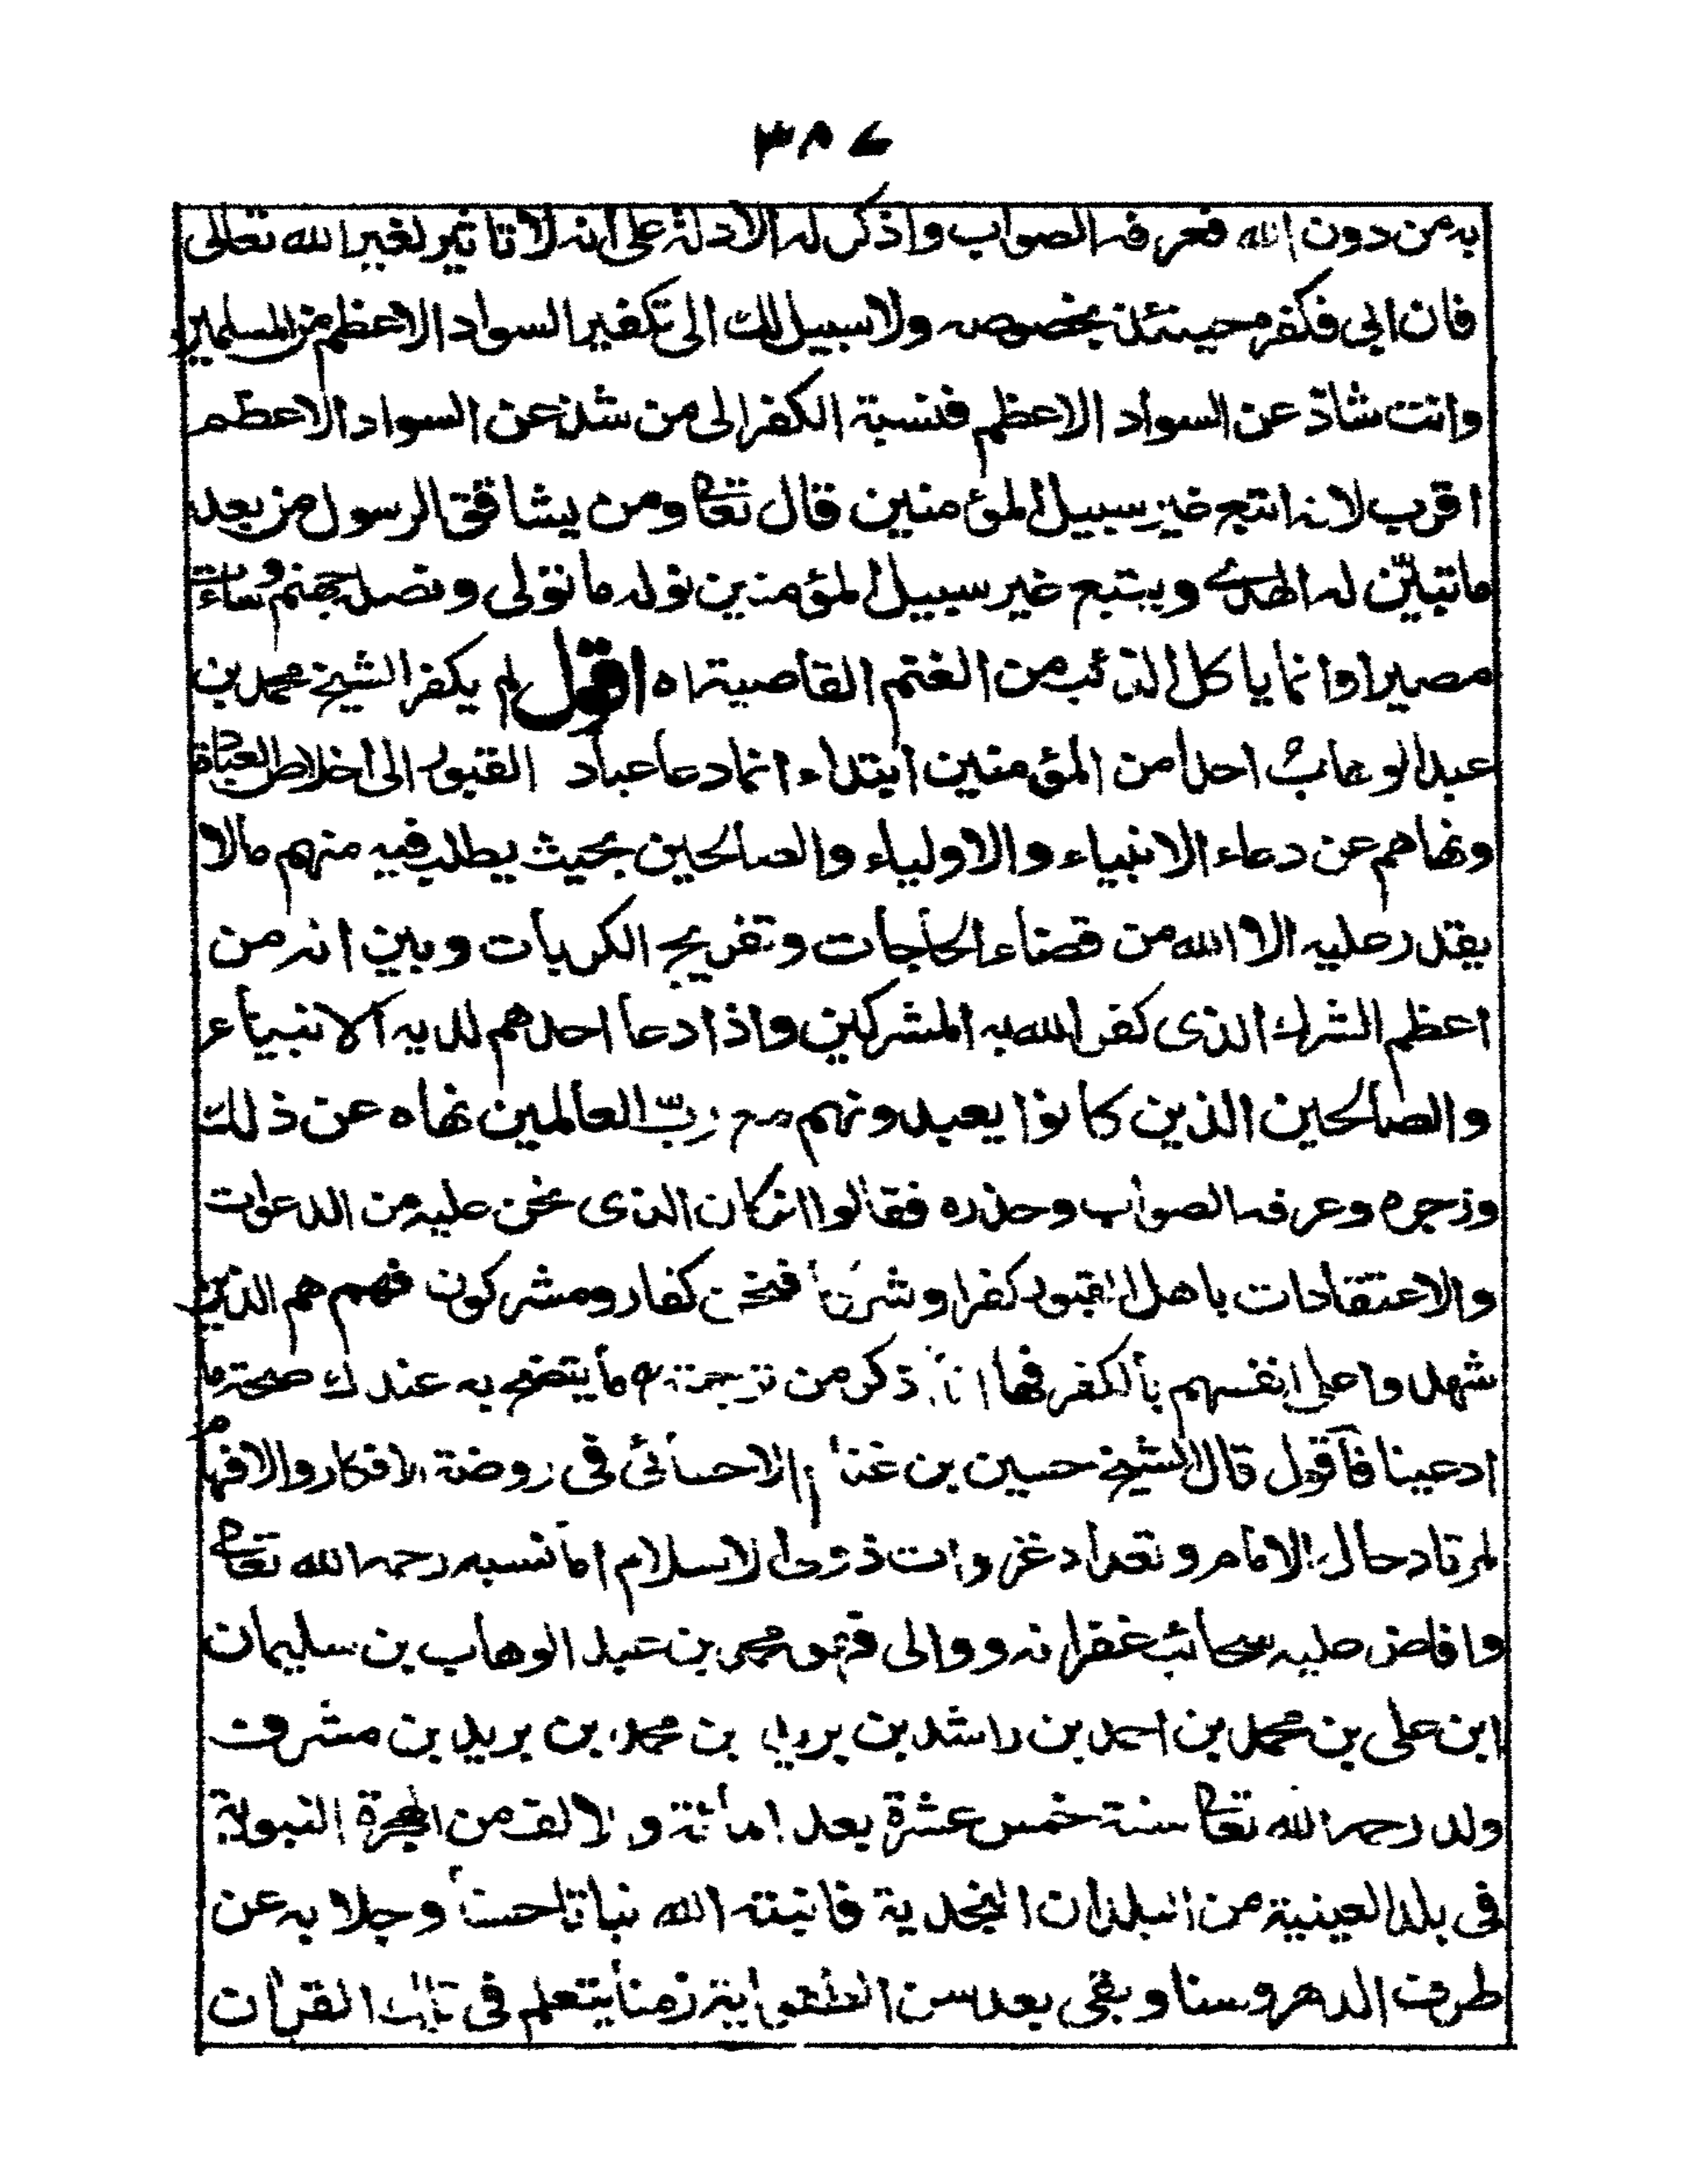 ٣٨٤
به من دون الله فعرفه الصواب واذكر له الادلة على انه لا تاثير لغير الله تعالى
فان ابى فكفره حينئذ بخصوصه ولا سبيل لك الى تكفير السواد الاعظم من المسلمين
وانت شاذ عن السواد الاعظم فنسبة الكفر الى من شذ عن السواد الاعظم
اقرب لانه اتبع غير سبيل المؤمنين قال تعا ومن يشاقق الرسول من بعد
ما تبيّن له الهدى ويتبع غير سبيل المؤمنين نوله ما تولى ونصله جهنم وساءت
مصيرا وانما ياكل الذئب من الغنم القاصية اه اقول لم يكفر الشيخ محمد بن
عبد الوهاب احدا من المؤمنين ابتداء انما دعا عباد القبور الى اخلاص العبادة
ونهاهم عن دعاء الانبياء والاولياء والصالحين بحيث يطلب فيه منهم مالا
يقدر عليه الا الله من قضاء الحاجات وتفريج الكربات وبين انه من
اعظم الشرك الذى كفر الله به المشركين واذا دعا احدهم لديه الانبياء
والصالحين الذين كانوا يعبدونهم مع ربّ العالمين نهاه عن ذلك
وزجره وعرفه الصواب وحذره فقالوا ان كان الذى نحن عليه من الدعوات
والاعتقادات باهل القبور كفرا وشركا فنحن كفار ومشركون فهم هم الذين
شهدوا على انفسهم بالكفر فها انا ذكر من ترجمته ما يتضح به عندك صحة ما
ادعينا فاقول قال الشيخ حسين بن غنام الاحسائى فى روضة الافكار والافهام
لمرتاد حال الامام وتعداد غزوات ذوى الاسلام اما نسبه رحمه الله تعا
وافاض عليه سحائب غفرانه ووالى فهو محمد بن عبد الوهاب بن سليمان
ابن على بن محمد بن احمد بن راشد بن بريد بن محمد بن بريد بن مشرف
ولد رحمه الله تعا سنة خمس عشرة بعد المائة والالف من الهجرة النبوية
فى بلد العيينة من البلدان النجدية فانبته الله نباتا حسنا وجلا به عن
طرف الدهر وسنا وبقى بعد سن الطفولية زمنا يتعلم فى تلك القرأت